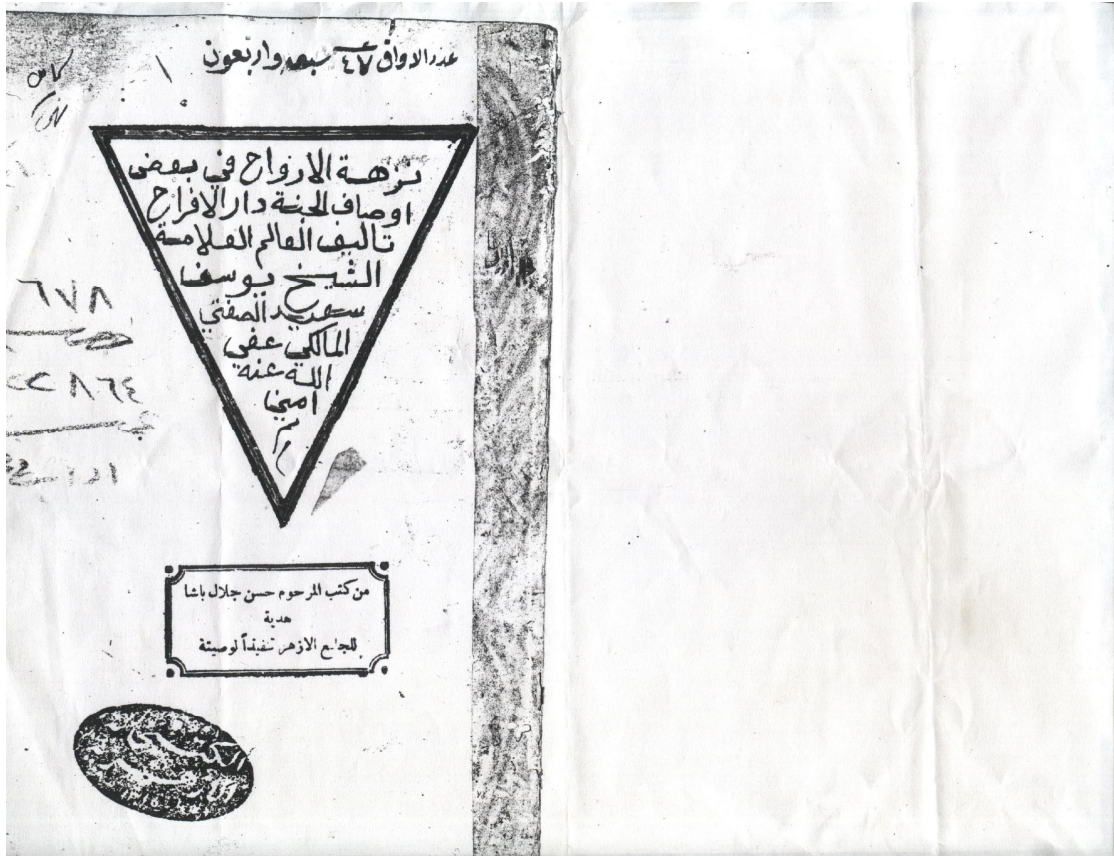 عدد الاوراق ٤٧ سبعه واربعون
نزهة الارواح في بعض
اوصاف الجنة دار الافراح
تاليف العالم العلامة
الشيخ يوسف
سعيد الصفتي
المالكي عفي
الله عنه
امين
م
٦٧٨
٢٢٨٦٤
من كتب المرحوم حسن جلال باشا
هدية
للجامع الازهر تنفيذاً لوصيتة